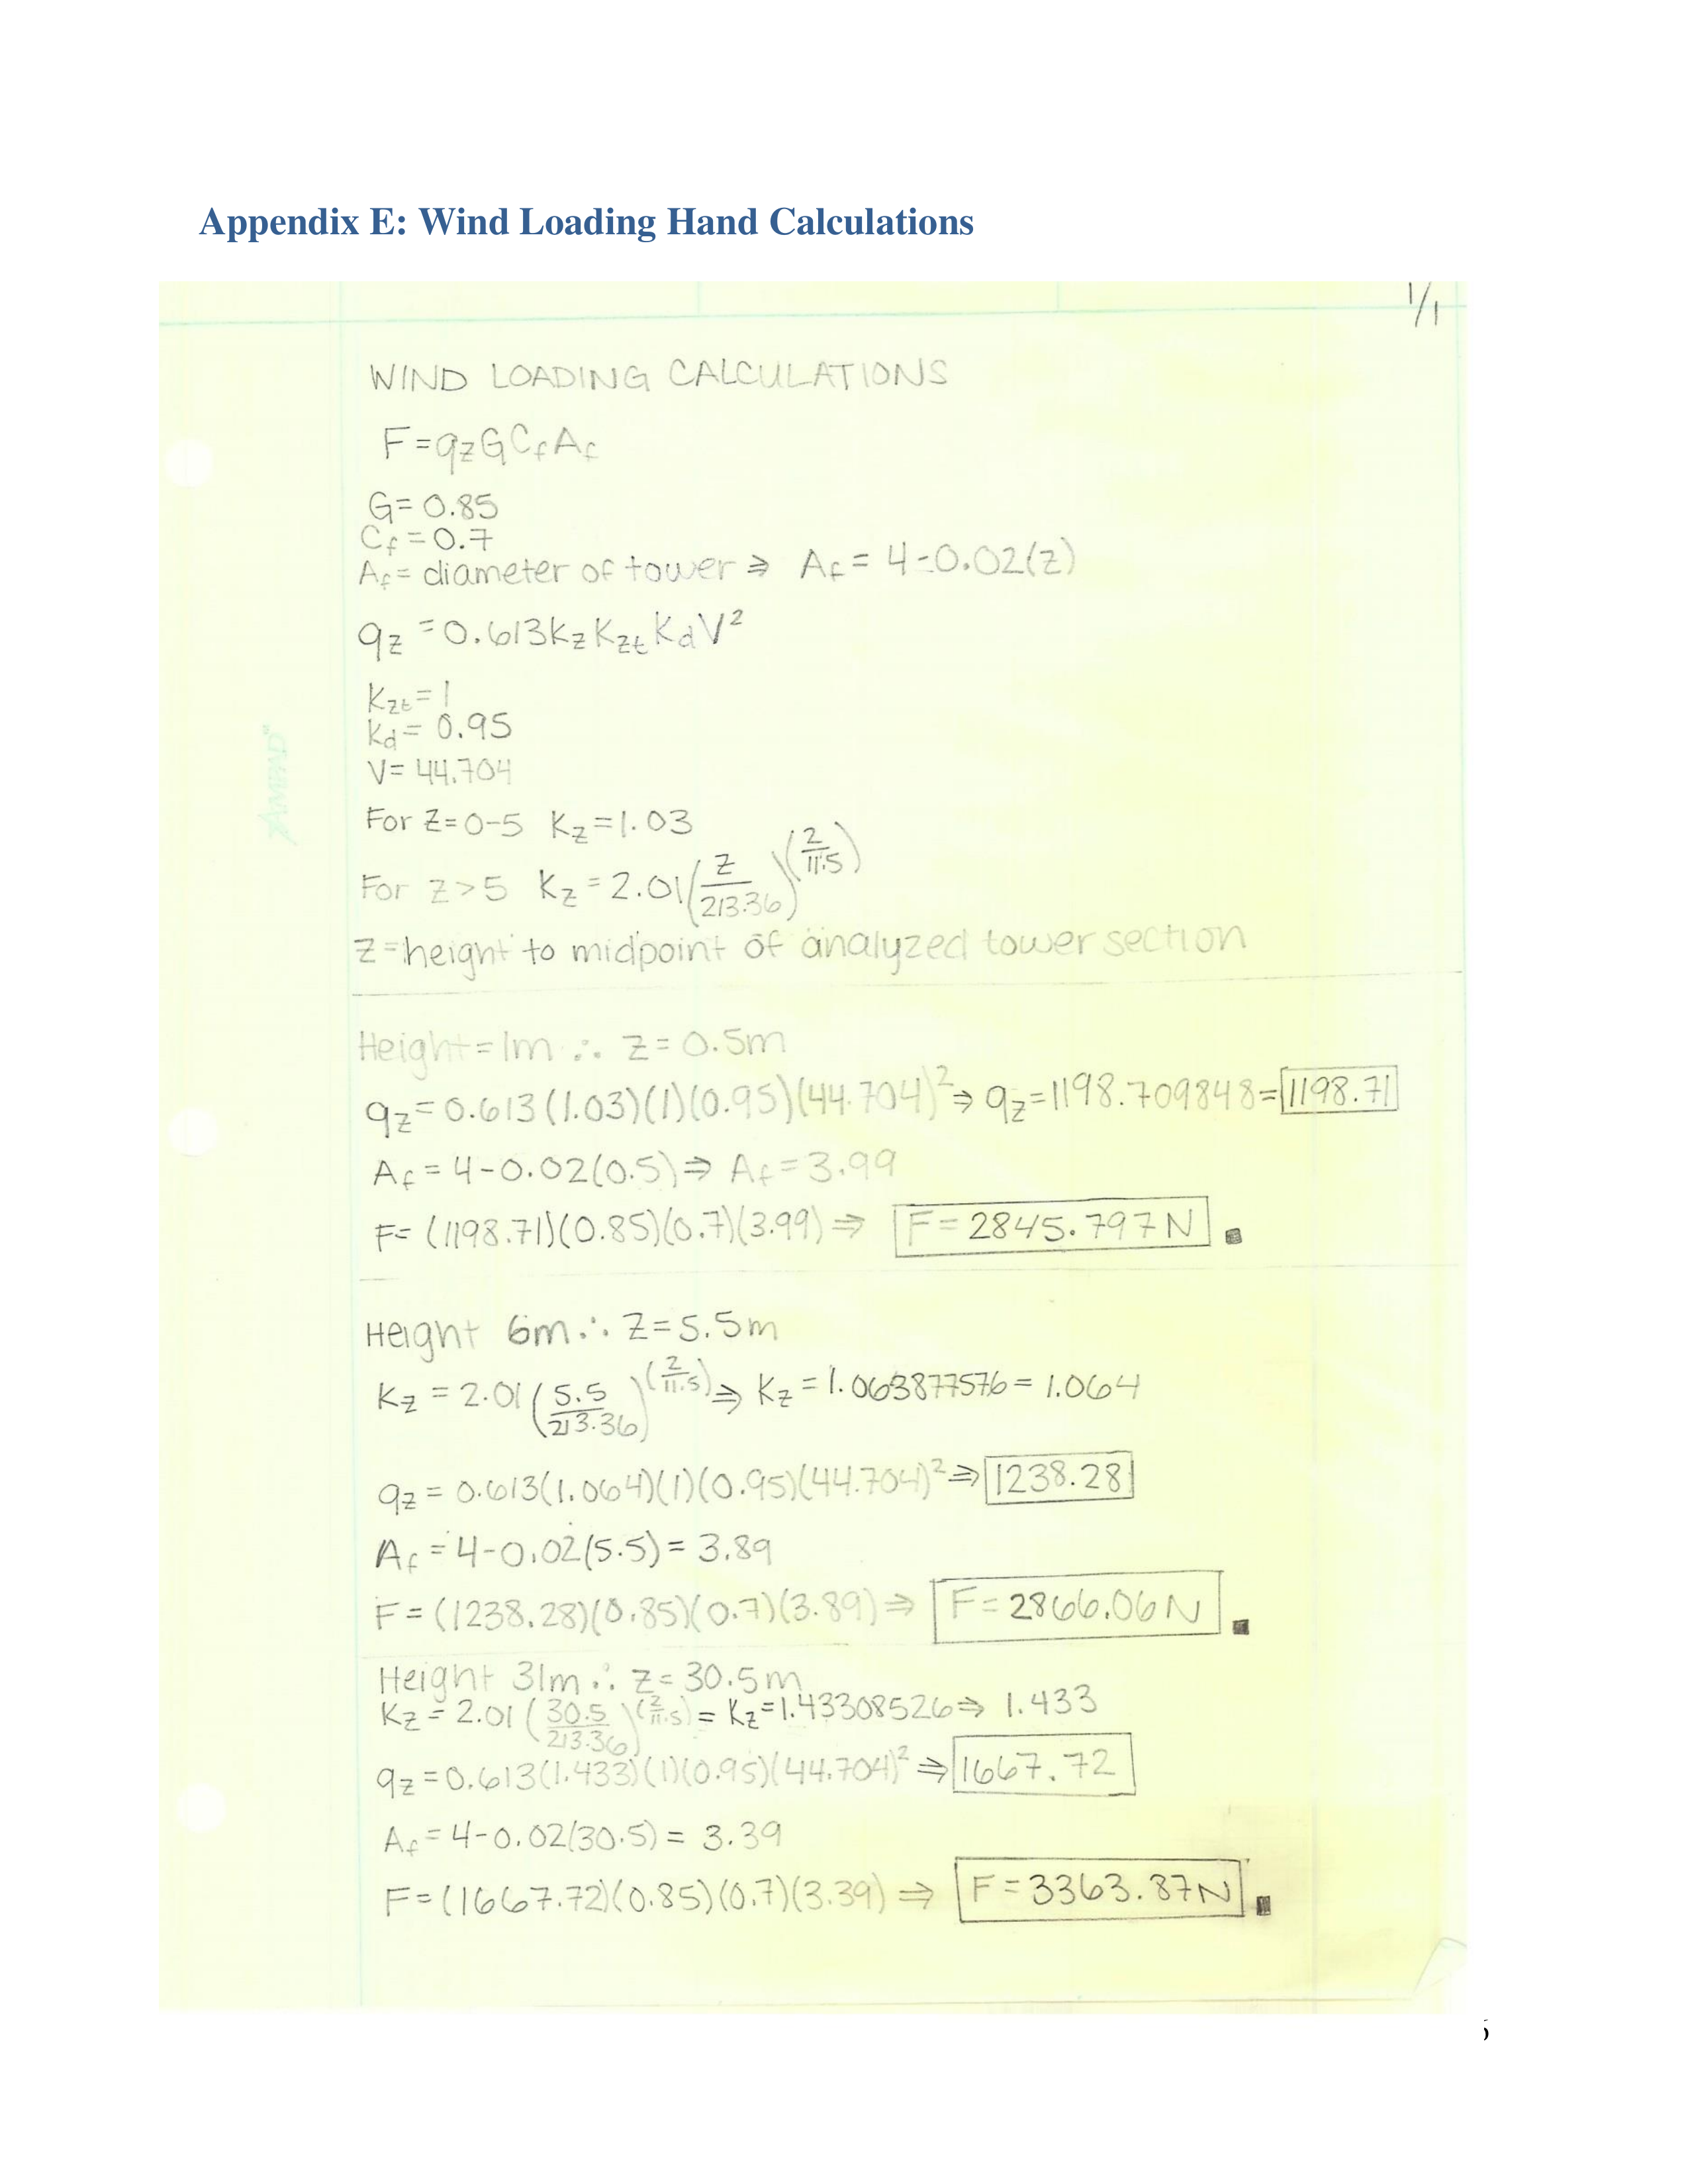 Appendix E: Wind Loading Hand Calculations
1/1
WIND LOADING CALCULATIONS
F=qzGCfAf
G=0.85
Cf=0.7
Af= diameter of tower ⇒ Af = 4-0.02(z)
qz = 0.613KzKztKdV²
Kzt=1
Kd=0.95
V=44.704
For Z=0-5 Kz=1.03
For Z>5 Kz=2.01(z/213.36)^(2/11.5)
Z=height to midpoint of analyzed tower section
AMPAD
Height=1m ∴ Z=0.5m
qz=0.613(1.03)(1)(0.95)(44.704)²⇒ qz=1198.709848=1198.71
Af=4-0.02(0.5)⇒ Af=3.99
F=(1198.71)(0.85)(0.7)(3.99)⇒ F=2845.797N
Height 6m ∴ Z=5.5m
Kz=2.01(5.5/213.36)^(2/11.5)⇒ Kz=1.063877576=1.064
qz=0.613(1.064)(1)(0.95)(44.704)²⇒1238.28
Af=4-0.02(5.5)=3.89
F=(1238.28)(0.85)(0.7)(3.89)⇒ F=2866.06N
Height 31m ∴ Z=30.5m
Kz=2.01(30.5/213.36)^(2/11.5)=Kz=1.43308526⇒ 1.433
qz=0.613(1.433)(1)(0.95)(44.704)²⇒1667.72
Af=4-0.02(30.5)=3.39
F=(1667.72)(0.85)(0.7)(3.39)⇒ F=3363.87N